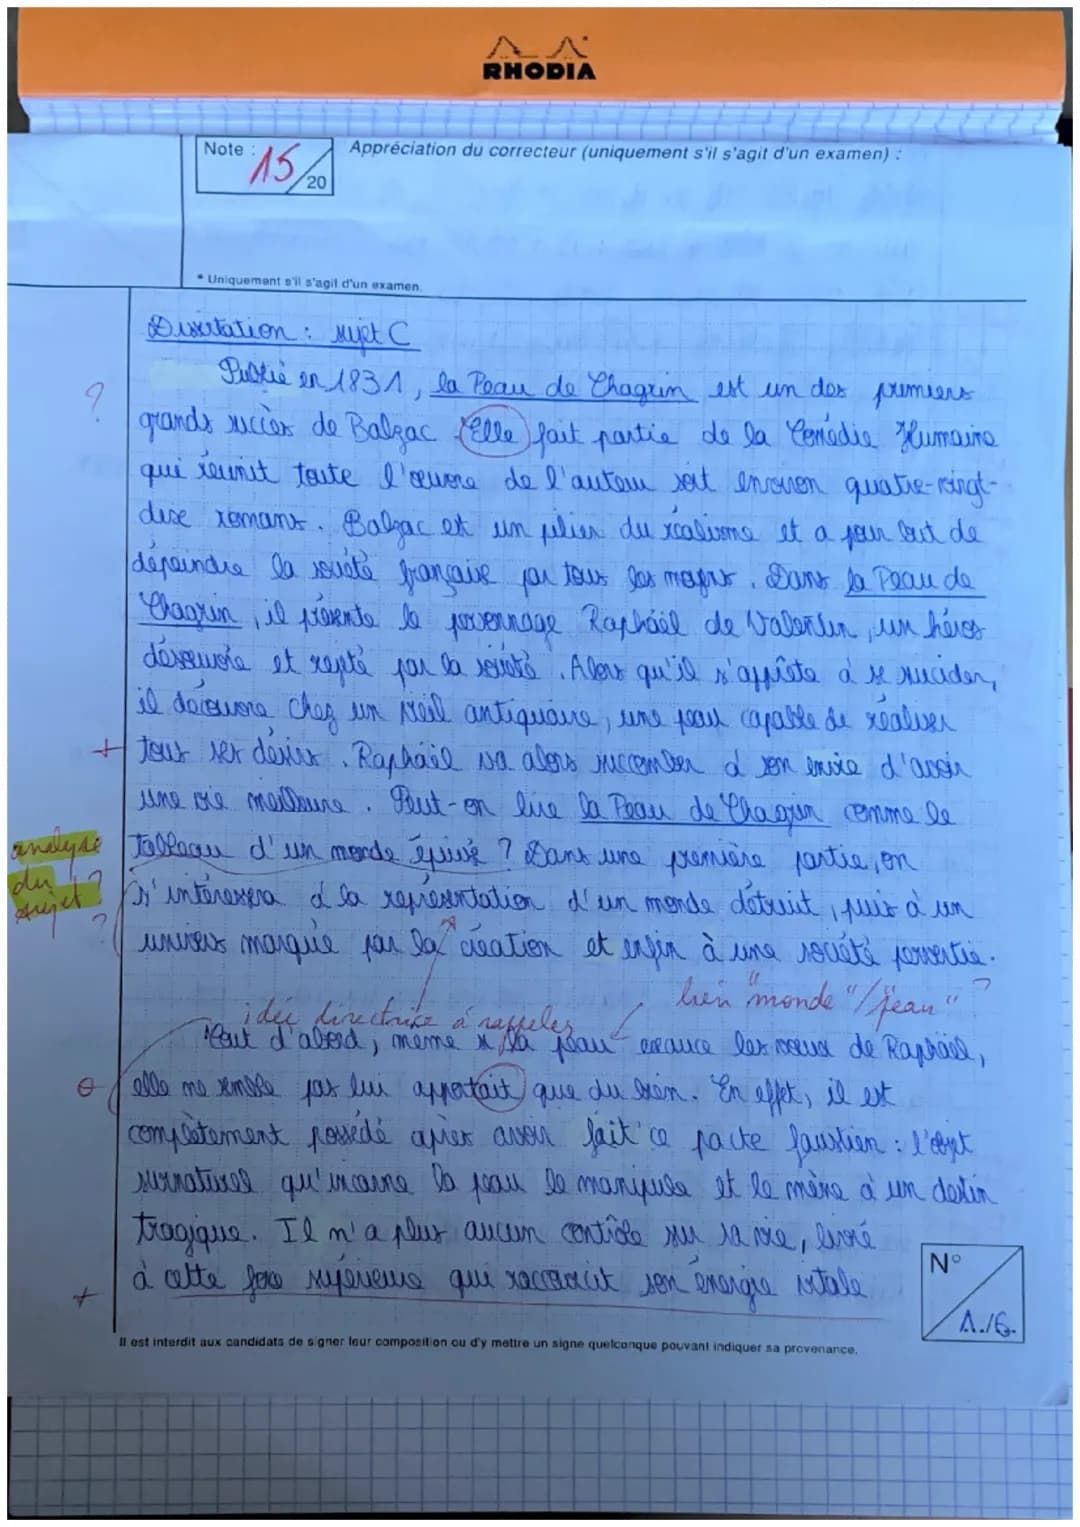 RHODIA
Note : 15/20
Appréciation du correcteur (uniquement s'il s'agit d'un examen) :
* Uniquement s'il s'agit d'un examen.
Dissertation : sujet C
Publié en 1831, la Peau de Chagrin est un des premiers
?
grands succès de Balzac. Elle fait partie de la Comédie Humaine
qui réunit toute l'œuvre de l'auteur soit environ quatre-vingt-
dix romans. Balzac est un pilier du réalisme et a pour but de
dépeindre la société française par tous les moyens. Dans la Peau de
Chagrin, il présente le personnage Raphaël de Valentin, un héros
désœuvré et rejeté par la société. Alors qu'il s'apprête à se suicider,
il découvre chez un vieil antiquaire, une peau capable de réaliser
+ tous ses désirs. Raphaël va alors succomber à son envie d'avoir
une vie meilleure. Peut-on lire la Peau de Chagrin comme le
analyse du sujet ?
tableau d'un monde épuisé ? Dans une première partie, on
s'intéressera à la représentation d'un monde détruit, puis à un
?
univers marqué par la création et enfin à une société pervertie.
lien "monde"/"peau" ?
idée directrice à rappeler
Tout d'abord, même si la peau exauce les vœux de Raphaël,
elle ne semble pas lui apportait que du bien. En effet, il est
complètement possédé après avoir fait ce pacte faustien : l'objet
surnaturel qu'incarne la peau le manipule et le mène à un destin
tragique. Il n'a plus aucun contrôle sur sa vie, livré
+ à cette force supérieure qui raccourcit son énergie vitale
N°
1./6.
Il est interdit aux candidats de signer leur composition ou d'y mettre un signe quelconque pouvant indiquer sa provenance.